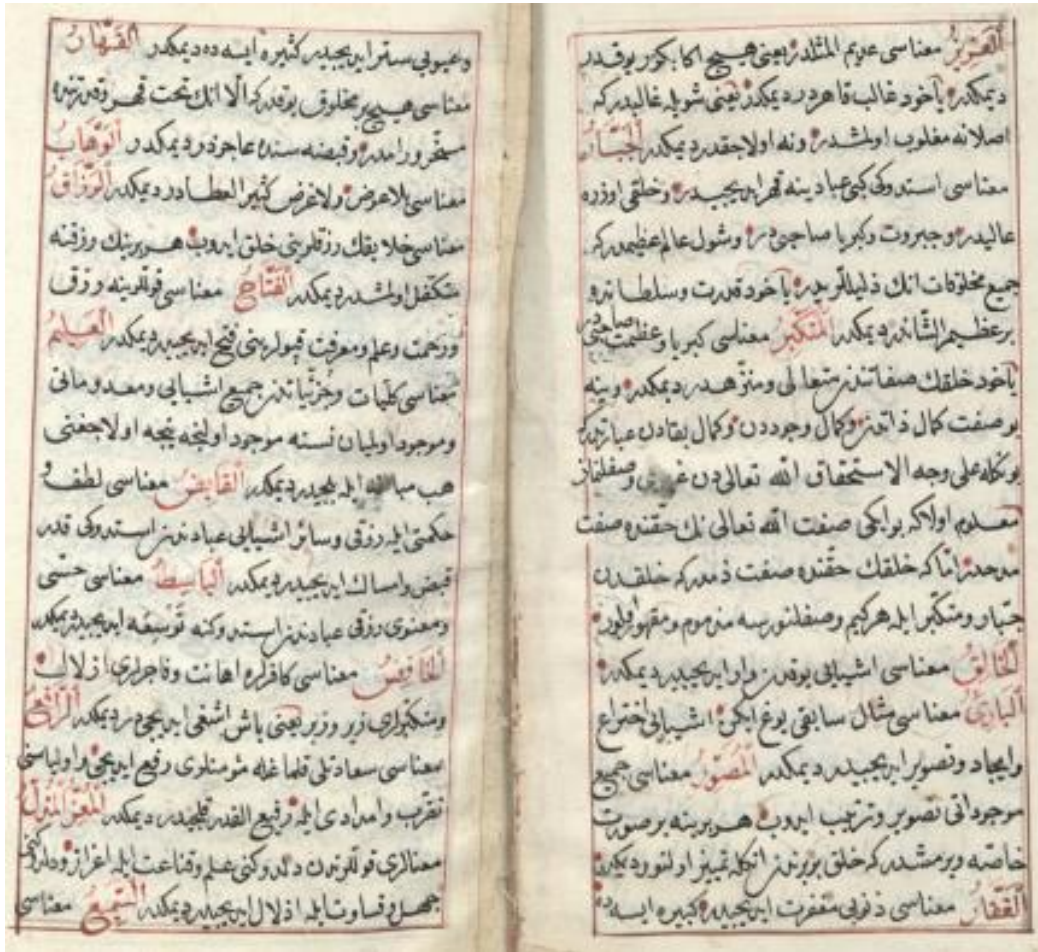 اَلْعَزِيزُ معناسى عديم المثلدر يعنى هيچ اكا بكزر يوقدر
ديمكدر ياخود غالب قاهردر ديمكدر يعنى شويله غالبدر كه
اصلانه مغلوب اولمشدر ونه اولاجقدر ديمكدر اَلْجَبَّارُ
معناسى استدوكى كبى عبادينه قهر ايديجيدر وخلقى اوزره
عاليدر وجبروت وكبريا صاحبى در وشول عالم عظيمدر كه
جميع مخلوقات انك ذليللريدر ياخود قدرت وسلطاندرو
بر عظيم الشاندر ديمكدر اَلْمُتَكَبِّرُ معناسى كبريا وعظمت صاحبى در
ياخود خلقك صفاتندن متعالى ومنزّهدر ديمكدر وينه
بو صفت كمال ذاتدن وكمال وجوددن وكمال بقادن عبارتدركه
بونكله على وجه الاستحقاق الله تعالى دن غيرى وصفلنماز
معلوم اولا كه بو ايكى صفت الله تعالى نك حقنده صفت
مدحدر امّا كه خلقك حقنده صفت ذمدر كه خلقدن
جبّار ومتكبّر ايله هركيم وصفلنورسه مذموم ومقهور اولور
اَلْخَالِقُ معناسى اشيايى يوقدن وار ايديجيدر ديمكدر
اَلْبَارِئُ معناسى مثال سابقى يوغ ايكن اشيايى اختراع
وايجاد وتصوير ايديجيدر ديمكدر اَلْمُصَوِّرُ معناسى جميع
موجوداتى تصوير وترتيب ايدوب هر برينه بر صورت
خاصّه ويرمشدر كه خلق بربرندن انكله تمييز اولنور ديمكدر
اَلْغَفَّارُ معناسى ذنوبى مغفرت ايديجيدر كبيره ايسه ده
وعيوبى ستر ايديجيدر كثيره ايسه ده ديمكدر اَلْقَهَّارُ
معناسى هيچ بر مخلوق يوقدر كه الا انك تحت قهر وقدرتنده
مسخّر ورامدر وقبضه سنده عاجزدر ديمكدر اَلْوَهَّابُ
معناسى بلا عوض ولا غرض كثير العطادر ديمكدر اَلرَّزَّاقُ
معناسى خلايقك رزقلرينى خلق ايدوب هر برينك رزقنه
متكفّل اولمشدر ديمكدر اَلْفَتَّاحُ معناسى قوللرينه رزق
ورحمت وعلم ومعرفت قپولرينى فتح ايديجيدر ديمكدر اَلْعَلِيمُ
معناسى كلّيات وجزئياتدن جميع اشيايى ومعدوماتى
وموجود اوليان نسنه موجود اولنجه نيجه اولاجغنى
هب مبالغه ايله بليجيدر ديمكدر اَلْقَابِضُ معناسى لطف و
حكمتى ايله رزقى وسائر اشيايى عبادندن استدوكى قدر
قبض وامساك ايديجيدر ديمكدر اَلْبَاسِطُ معناسى حسّى
ومعنوى رزقى عبادندن استدوكنه توسعه ايديجيدر ديمكدر
اَلْخَافِضُ معناسى كافرلره اهانت وفاجرلرى اذلال
ومتكبّرلرى زير وزبر يعنى باش اشغى ايديجى در ديمكدر اَلرَّافِعُ
معناسى سعادتلى قلماغله مؤمنلرى رفع ايديجى واولياسنى
تقريب وامدادى ايله رفيع القدر قليجيدر ديمكدر اَلْمُعِزُّ اَلْمُذِلُّ
معنالرى قوللرندن دلدوكنى علم وقناعت ايله اعزاز ودلدوكنى
جهل وقساوت ايله اذلال ايديجيدر ديمكدر اَلسَّمِيعُ معناسى